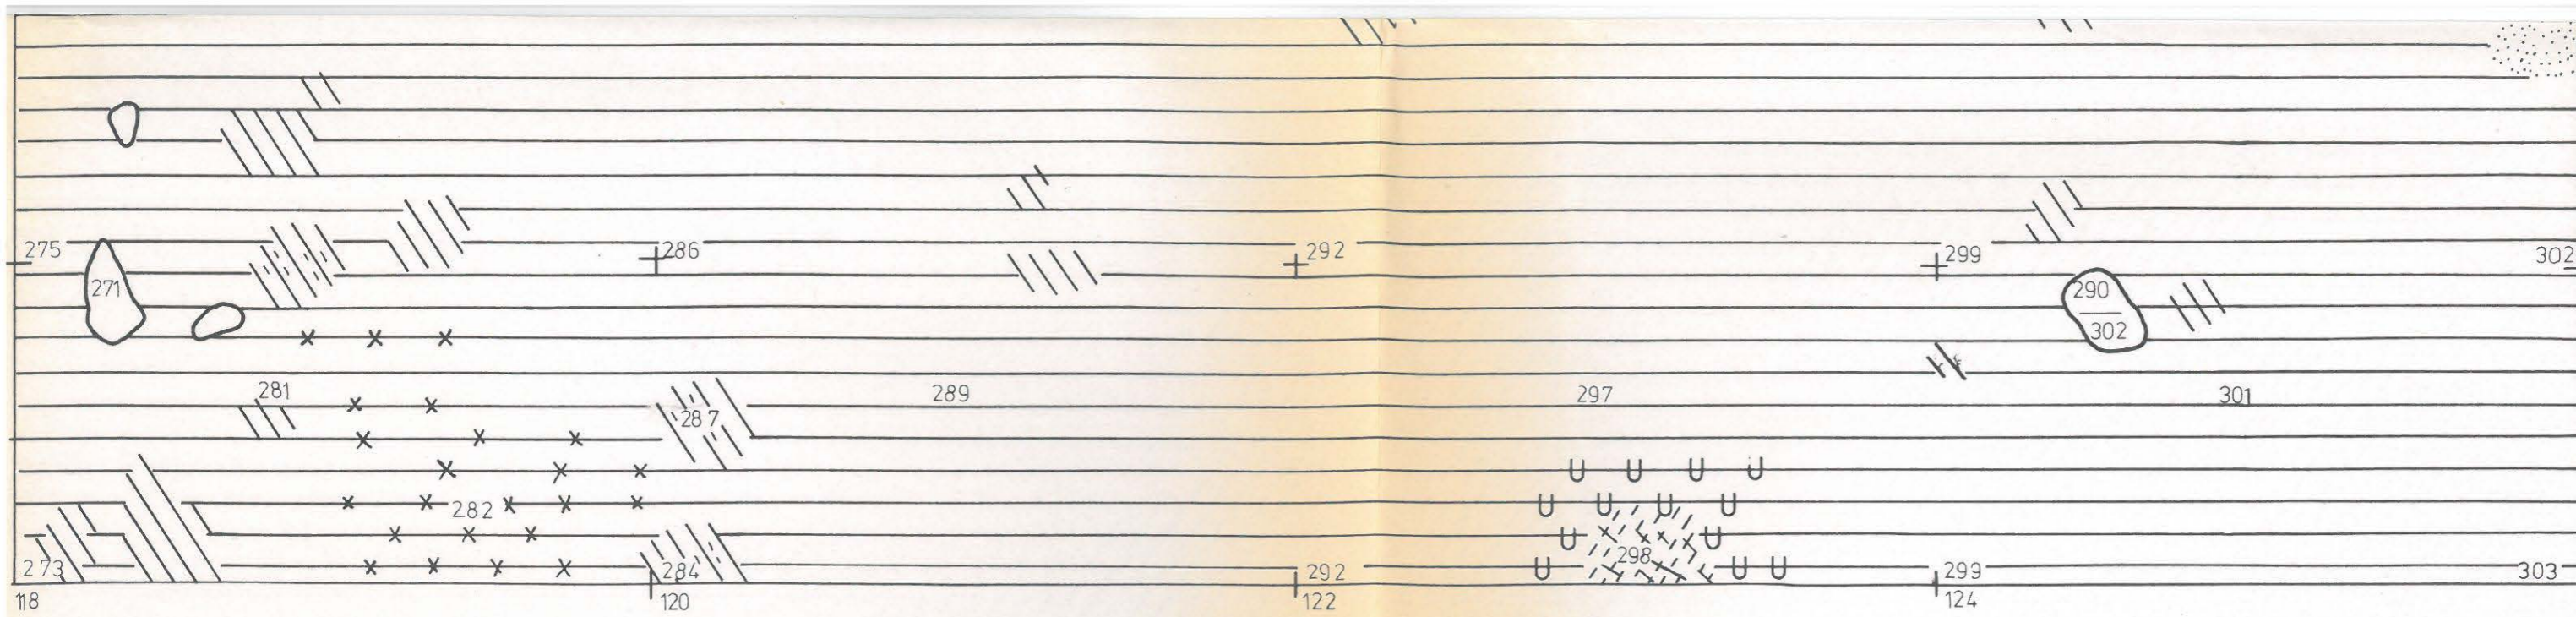 275 286 292 299 302
271 290
302
281 289 297 301
287
282
298
273 284 292 299 303
118 120 122 124